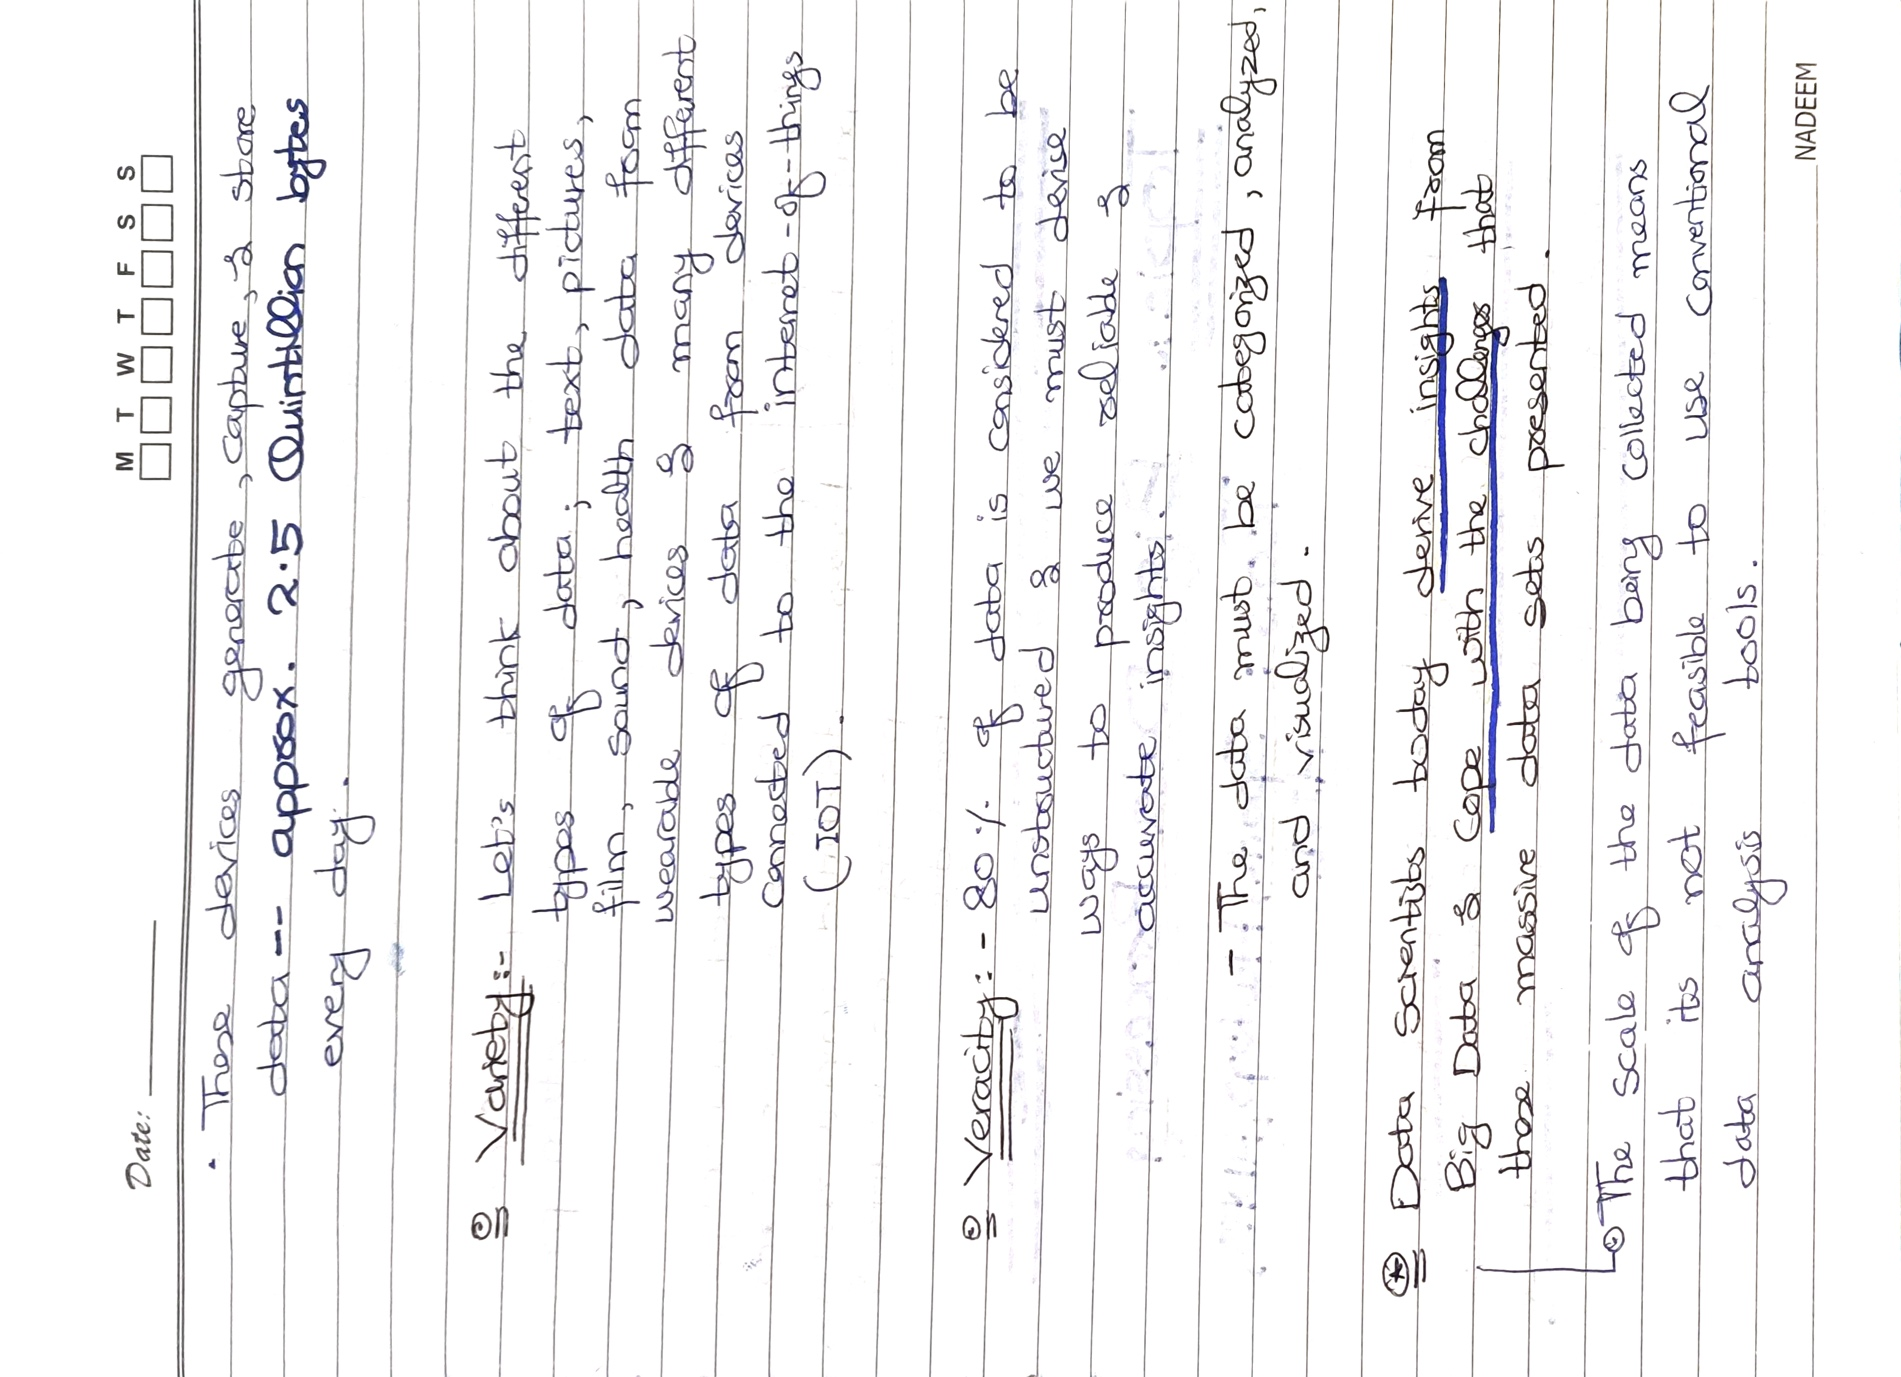 Date:
M T W T F S S
• These devices generate, capture, & store
data -- approx. 2.5 Quintillion bytes
every day.
⊙ Variety:- Let's think about the different
types of data; text, pictures,
film, sound, health data from
wearable devices & many different
types of data from devices
Connected to the internet-of-things
(IOT).
⊙ Veracity:- 80% of data is considered to be
unstructured & we must devise
ways to produce reliable &
accurate insights.
- The data must be categorized, analyzed,
and visualized.
⊛ Data Scientists today derive insights from
Big Data & Cope with the challenges that
these massive data sets presented.
⊙ The scale of the data being collected means
that its not feasible to use conventional
data analysis tools.
NADEEM